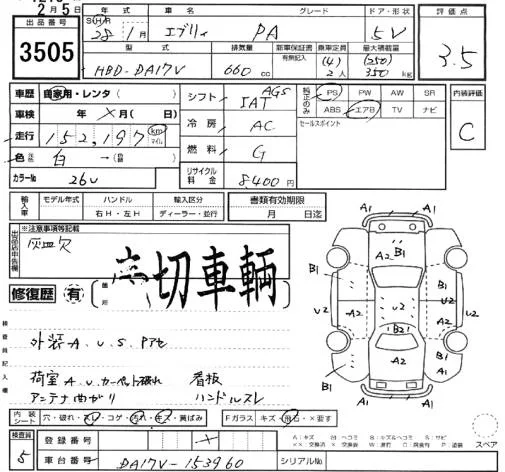 2月5日
出品番号
3505
年式
S(H)R
28年1月
車名
エブリィ
グレード
PA
ドア・形状
5V
評価点
3.5
型式
HBD-DA17V
排気量
660cc
新車保証書
有無記入
乗車定員
(4)
2人
最大積載量
(250)
350kg
車歴 自家用・レンタ( )
シフト AGS
5AT
純正のみ
PS PW AW SR
ABS エアB TV ナビ
内装評価
C
車検 年 ×月( 日)
冷房 AC
セールスポイント
走行 152,197 km マイル
燃料 G
色 白
カラーNo 26U
リサイクル料金 8400円
輸入車
モデル年式 ハンドル 輸入区分
右H・左H ディーラー・並行
書類有効期限
月 日迄
出品店申告欄
※注意事項等記載
灰皿欠
修復歴 有
箇所
切車輌
検査員記入欄
外装A.U.S.Pアセ
荷室A.U.カーペット破れ 看板
アンテナ曲がり ハンドルスレ
A1 A1
A2 B1
B1 B1
U2 A2 U2 U2
B2
B1 A2 B1
A1 A1
内装シート
穴・破れ・スレ・コゲ・汚れ・キズ・黄ばみ
Fガラス キズ・飛石・×要す
スペア
検査員
5
登録番号
車台番号 DA17V-153960
シリアルNo.